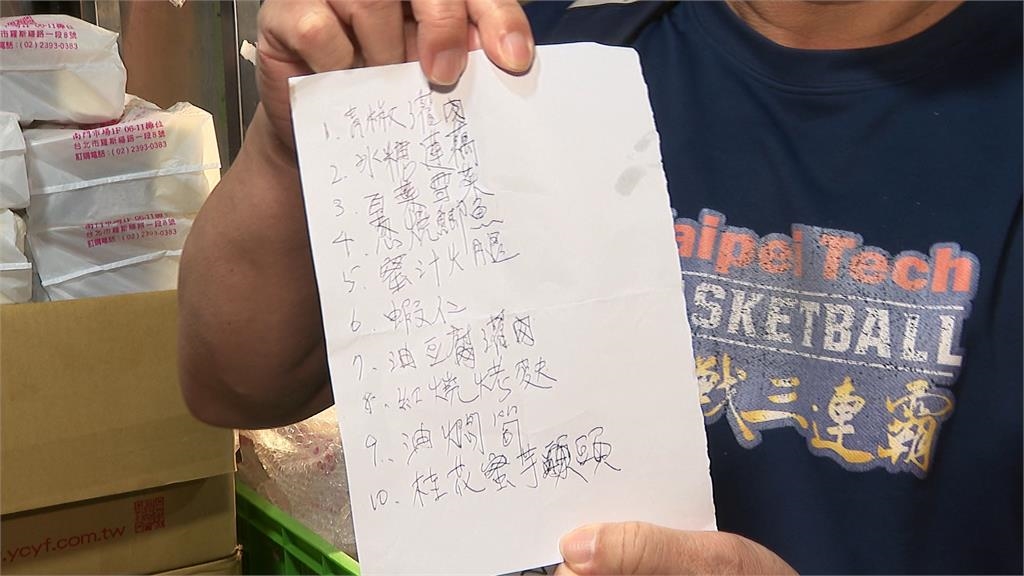 南門市場1F 06-11攤位
台北市羅斯福路一段8號
(02)2393-0383
南門市場1F 06-11攤位
台北市羅斯福路一段8號
訂購電話:(02)2393-0383
南門市場1F 06-11攤位
台北市羅斯福路一段8號
訂購電話:(02)2393-0383
.ycyf.com.tw
1. 青椒灌肉
2. 冰糖蓮藕
3. 雪菜
4. 蔥燒鯽魚
5. 蜜汁火腿
6. 蝦仁
7. 油豆腐灌肉
8. 紅燒烤麩
9. 油燜筍
10. 桂花蜜芋頭
Taipei Tech
BASKETBALL
戰三連霸